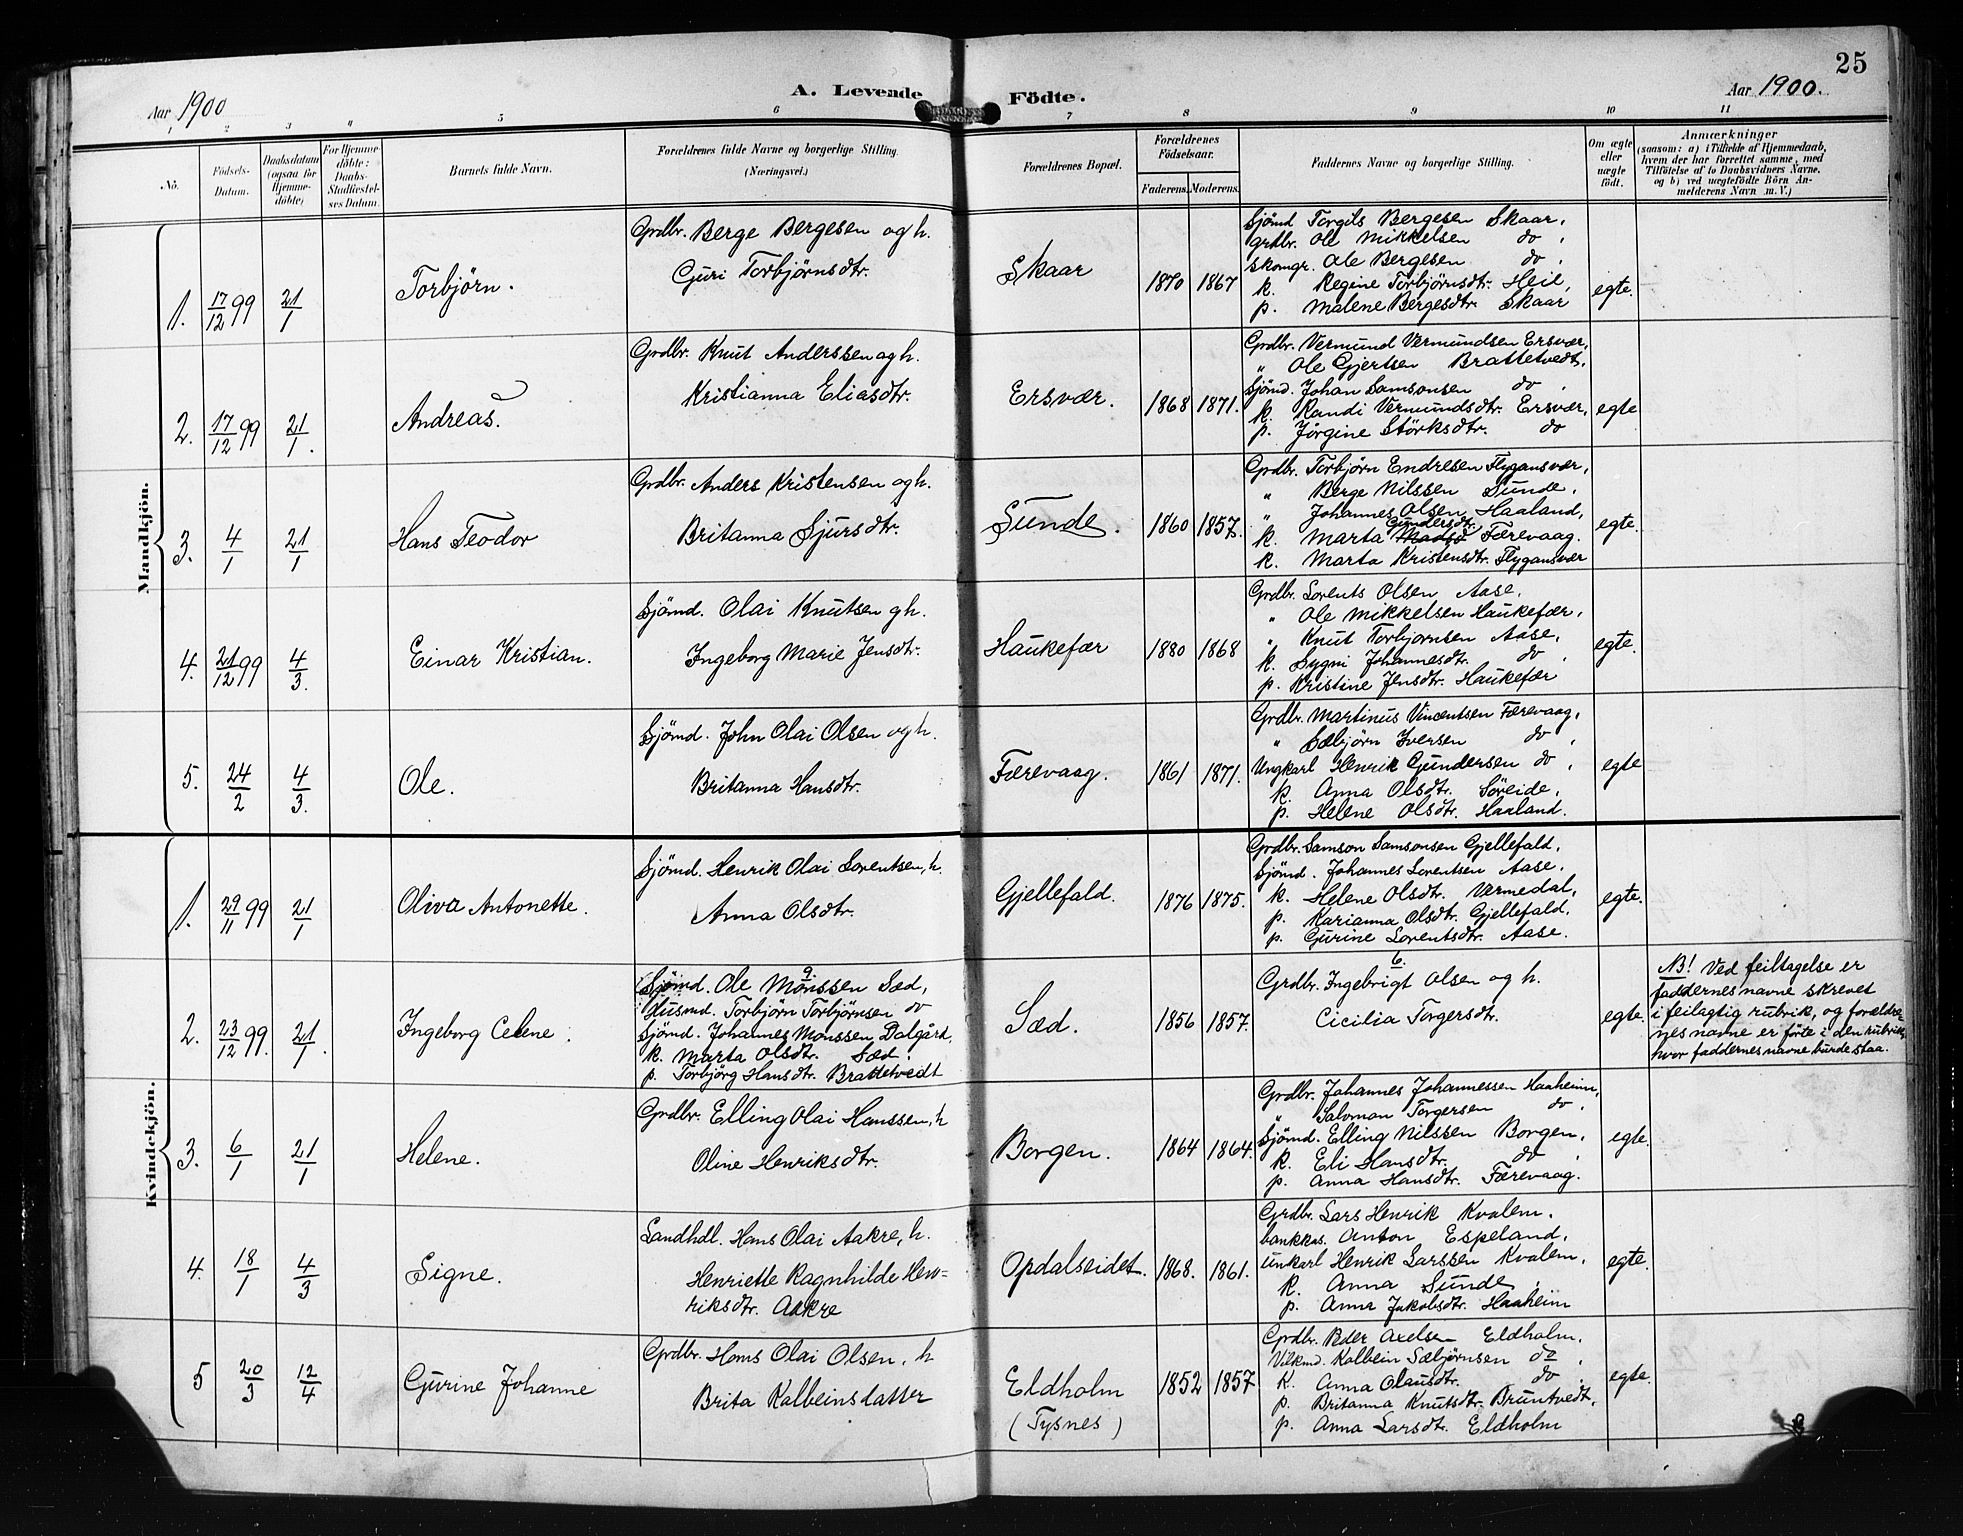 25
Aar 1900
A. Levende Födte.
Aar 1900.
1 2 3 4 5 6 7 8 9 10 11
No.
Födsels-Datum.
Daabsdatum (ogsaa for Hjemme-döbte)
For Hjemme-döbte: Daabs-Stadfæstel-ses Datum.
Barnets fulde Navn.
Forældrenes fulde Navne og borgerlige Stilling. (Næringsvei.)
Forældrenes Bopæl.
Forældrenes Födselsaar.
Faderens. Moderens.
Faddernes Navne og borgerlige Stilling.
Om ægte eller uægte födt.
Anmærkninger
(saasom: a) i Tilfælde af Hjemmedaab, hvem der har forrettet samme, med Tilföielse af to Daabsvidners Navne. og b) ved uægtefödte Börn An-melderens Navn m. V.)
Mandkjön.
1. 17/12 99 21/1 Torbjörn.
Grdbr. Berge Bergesen og h.
Guri Torbjörnsdtr.
Skaar 1870 1867
Sjömd Torgils Bergesen Skaar,
grdbr. Ole Mikkelsen do,
skomgr. Ole Bergesen do,
k. Regine Torbjörnsdtr. Heil,
p. Malene Bergesdtr. Skaar
egte.
2. 17/12 99 21/1. Andreas.
Grdbr. Knut Anderssen og h.
Kristianna Eliasdtr.
Ersvær. 1868 1871.
Grdbr. Vermund Vermundsen Ersvær,
„ Ole Gjertsen Brattetvedt,
Sjömd. Johan Samsonsen do,
k. Randi Vermundsdtr. Ersvær,
p. Jörgine Störksdtr. do
egte
3. 4/1 21/1 Hans Teodor
Grdbr. Anders Kristensen og h.
Britanna Sjursdtr.
Sunde. 1860 1857.
Grdbr. Torbjörn Endresen Flygansvær,
„ Berge Nilssen Sunde,
„ Johannes Olsen Haaland,
Gundersdtr.
k. Marta Færevaag.
k. Marta Kristensdtr. Flygansvær
egte.
4. 21/12 99 4/3. Einar Kristian.
Sjömd. Olai Knutsen og h.
Ingeborg Marie Jensdtr.
Haukefær 1880 1868
Grdbr. Lorents Olsen Aase,
„ Ole Mikkelsen Haukefær,
„ Knut Torbjörnsen Aase,
k. Sygni Johannesdtr. do,
p. Kristine Jensdtr. Haukefær
egte.
5. 24/2 4/3. Ole.
Sjömd. John Olai Olsen og h.
Britanna Hansdtr.
Færevaag. 1861 1871.
Grdbr. Martinus Vincentsen Færevaag,
„ Sæbjörn Iversen do,
Ungkarl Henrik Gundersen do,
k. Anna Olsdtr. Söreide,
p. Helene Olsdtr. Haaland.
egte
Kvindekjön.
1. 29/11 99 21/1 Oliva Antonette.
Sjömd. Henrik Olai Lorentsen, h.
Anna Olsdtr.
Gjellefald. 1876 1875.
Grdbr. Samson Samsonsen Gjellefald,
Sjömd. Johannes Lorentsen Aase,
k. Helene Olsdtr. Vermedal,
p. Karianna Olsdtr. Gjellefald,
p. Gurine Lorentsdtr. Aase.
egte.
2. 23/12 99. 21/1. Ingeborg Celene.
9.
Sjömd. Ole Monssen Sæd,
Husmd. Torbjörn Torbjörnsen do
Sjömd. Johannes Monssen Dalgård,
k. Marta Olsdtr. Sæd.
p. Torbjörg Hansdtr. Brattetvedt
Sæd. 1856 1857.
6.
Grdbr. Ingebrigt Olsen og h.
Cicilia Torgersdtr.
egte.
NB! Ved feiltagelse er
faddernes navne skrevet
i feilagtig rubrik, og forældre-
nes navne er förte i den rubrik,
hvor faddernes navne burde staa.
3. 6/1 21/1 Helene.
Grdbr. Elling Olai Hanssen, h
Oline Henriksdtr.
Borgen. 1864 1864.
Grdbr. Johannes Johannessen Haaheim,
„ Salomon Torgersen do,
Sjömd. Elling Nilssen Borgen,
k. Eli Hansdtr. do,
p. Anna Hansdtr. Færevaag.
egte.
4. 18/1 4/3 Signe.
Landhdl. Hans Olai Aakre, h.
Henriette Ragnhilde Hen-
riksdtr. Aakre
Opdalseidet. 1868. 1861.
Grdbr. Lars Henrik Kvalem,
bankkas. Anton Espeland,
unkarl Henrik Larssen Kvalem,
k. Anna Sunde,
p. Anna Jakobsdtr. Haaheim
egte.
5 20/3 12/4 Gurine Johanne
Grdbr. Hans Olai Olsen, h
Brita Kalbeinsdatter
Eldholm
(Tysnes)
1852 1857
Grdbr. Peder Axelsen Eldholm,
Vilkmd. Kalbein Sæbjörnsen do,
K. Anna Olausdtr. do,
p. Britanna Knutsdtr. Bruntvedt,
p. Anna Larsdtr. Eldholm
egte.